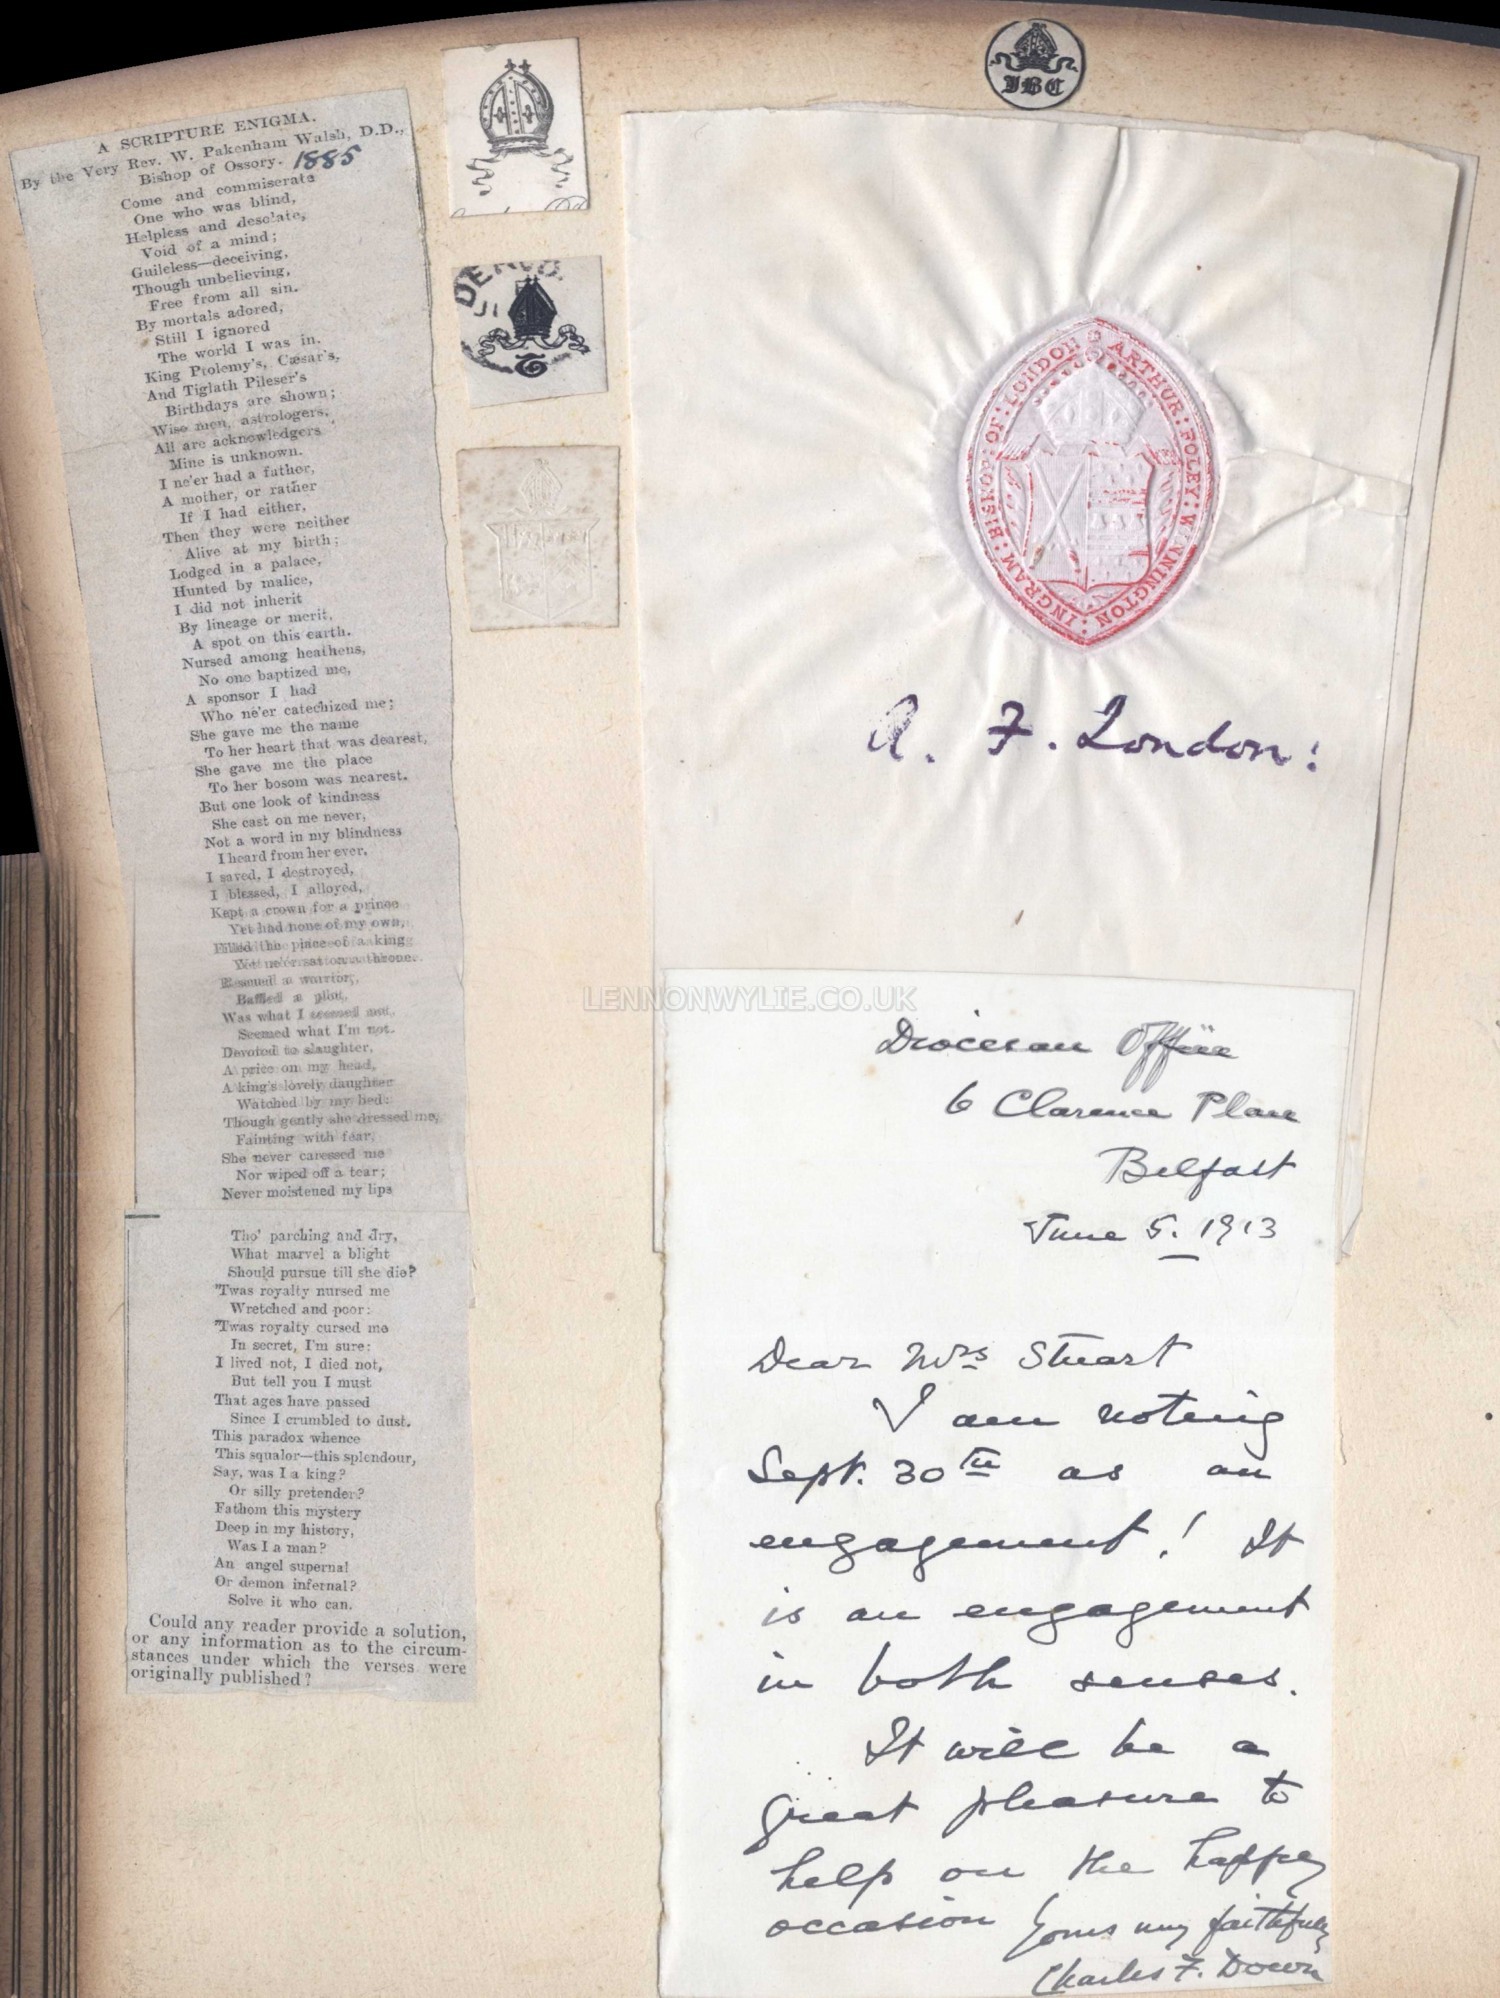 A SCRIPTURE ENIGMA.
By the Very Rev. W. Pakenham Walsh, D.D.,
Bishop of Ossory. 1885
Come and commiserate
One who was blind,
Helpless and desolate,
Void of a mind;
Guileless—deceiving,
Though unbelieving,
Free from all sin.
By mortals adored,
Still I ignored
The world I was in.
King Ptolemy's, Cæsar's,
And Tiglath Pileser's
Birthdays are shown;
Wise men, astrologers,
All are acknowledgers
Mine is unknown.
I ne'er had a father,
A mother, or rather
If I had either,
Then they were neither
Alive at my birth;
Lodged in a palace,
Hunted by malice,
I did not inherit
By lineage or merit,
A spot on this earth.
Nursed among heathens,
No one baptized me,
A sponsor I had
Who ne'er catechized me;
She gave me the name
To her heart that was dearest,
She gave me the place
To her bosom was nearest.
But one look of kindness
She cast on me never,
Not a word in my blindness
I heard from her ever.
I saved, I destroyed,
I blessed, I alloyed,
Kept a crown for a prince
Yet had none of my own,
Filled the place of a king
Yet ne'er sat on a throne.
Rescued a warrior,
Baffled a plot,
Was what I seemed not,
Seemed what I'm not.
Devoted to slaughter,
A price on my head,
A king's lovely daughter
Watched by my bed:
Though gently she dressed me,
Fainting with fear,
She never caressed me
Nor wiped off a tear;
Never moistened my lips
Tho' parching and dry,
What marvel a blight
Should pursue till she die?
'Twas royalty nursed me
Wretched and poor:
'Twas royalty cursed me
In secret, I'm sure:
I lived not, I died not,
But tell you I must
That ages have passed
Since I crumbled to dust.
This paradox whence
This squalor—this splendour,
Say, was I a king?
Or silly pretender?
Fathom this mystery
Deep in my history,
Was I a man?
An angel supernal
Or demon infernal?
Solve it who can.
Could any reader provide a solution,
or any information as to the circum-
stances under which the verses were
originally published?
IBC
ARTHUR: FOLEY: WINNINGTON: INGRAM: BISHOP: OF: LONDON
A. F. London:
LENNONWYLIE.CO.UK
Diocesan Office
6 Clarence Place
Belfast
June 5. 1913
Dear Mrs Stuart
I am noting
Sept. 30th as an
engagement! It
is an engagement
in both senses.
It will be a
great pleasure to
help on the happy
occasion Yours very faithfully
Charles F. Down